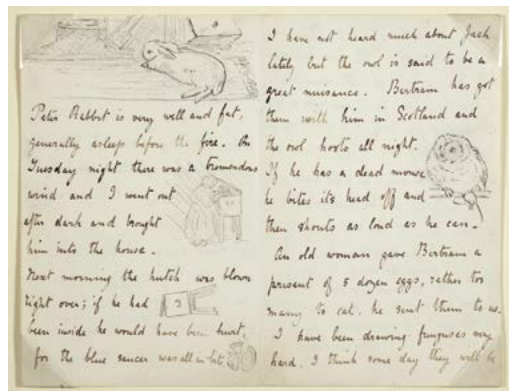 Peter Rabbit is very well and fat,
generally asleep before the fire. On
Tuesday night there was a tremendous
wind and I went out
after dark and brought
him into the house.
Next morning the hutch was blown
right over; if he had
been inside he would have been hurt,
for the blue saucer was all in bits.
I have not heard much about Jack
lately but the owl is said to be a
great nuisance. Bertram has got
them with him in Scotland and
the owl hoots all night.
If he has a dead mouse
he bites its head off and
then shouts as loud as he can.
An old woman gave Bertram a
present of 5 dozen eggs, rather too
many to eat, he sent them to us.
I have been drawing funguses very
hard, I think some day they will be